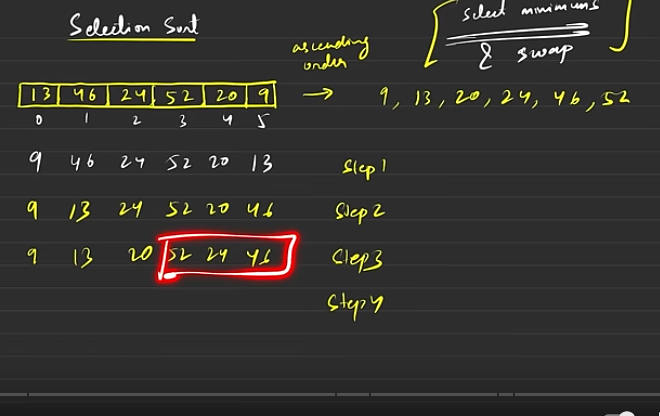 Selection Sort
[ select minimums
& swap ]
ascending
order
13 | 46 | 24 | 52 | 20 | 9 → 9, 13, 20, 24, 46, 52
0 1 2 3 4 5
9 46 24 52 20 13 Step 1
9 13 24 52 20 46 Step 2
9 13 20 52 24 46 Step 3
Step 4